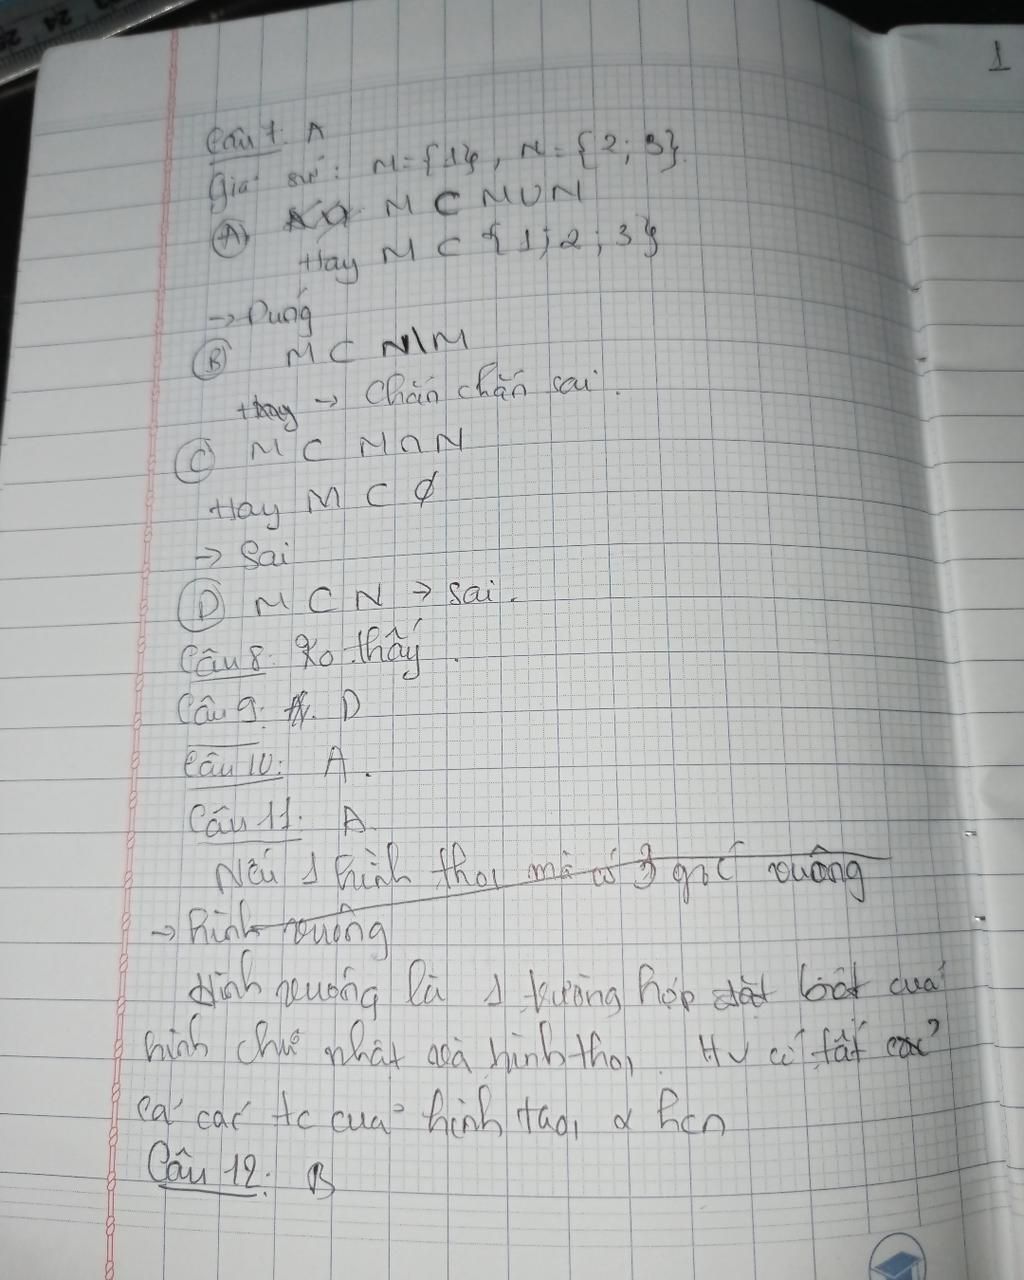 1
Câu 7: A
Giả sử: M = {1}, N = {2; 3}.
(A) M ⊂ M ∪ N
Hay M ⊂ {1; 2; 3}
→ Đúng
(B) M ⊂ N \ M
Hay → Chắn chắn sai.
(C) M ⊂ M ∩ N
Hay M ⊂ ∅
→ Sai
(D) M ⊂ N → sai.
Câu 8: Ko thấy.
Câu 9: D
Câu 10: A.
Câu 11: A.
Nếu 1 hình thoi mà có 3 góc vuông
→ Hình vuông
Hình vuông là 1 trường hợp đặt biệt của
hình chữ nhật và hình thoi. HV có tất
cả các tc của hình thoi & hcn
Câu 12: B
24
25